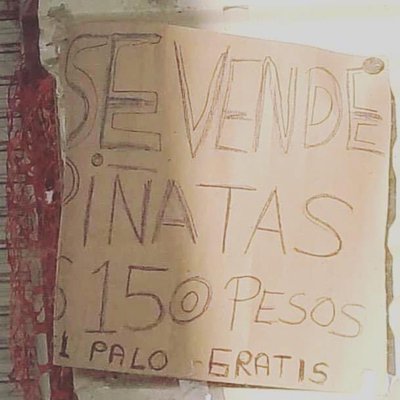 SE VENDE
PIÑATAS
$150 PESOS
L PALO -GRATIS